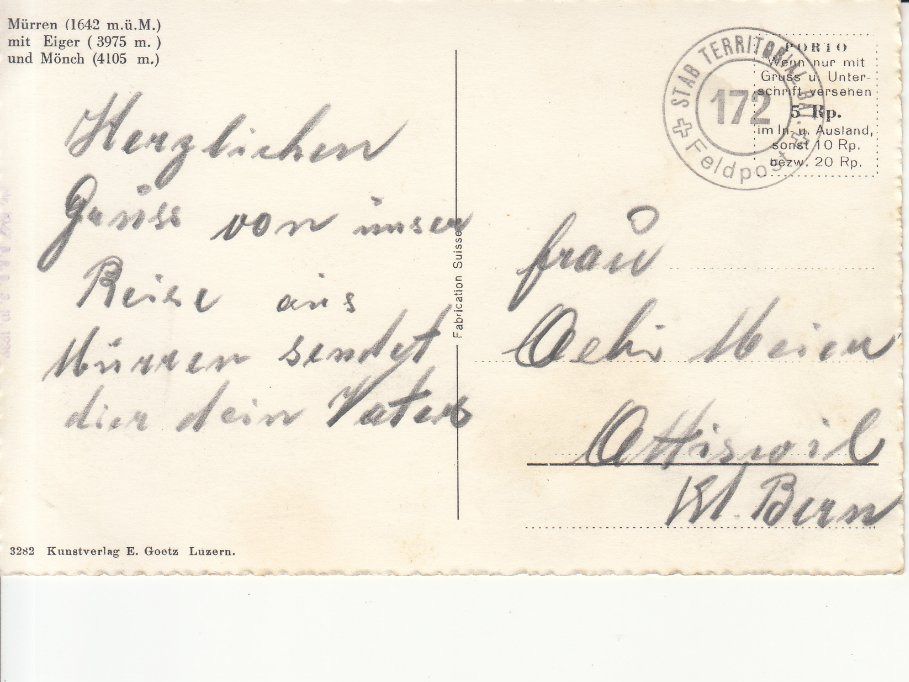 Mürren (1642 m.ü.M.)
mit Eiger (3975 m.)
und Mönch (4105 m.)
Herzlichen
Grüss von unser
Reise aus
Mürren sendet
dier dein Vater
3282 Kunstverlag E. Goetz Luzern.
Fabrication Suisse
STAB TERRITORIAL BAT.
172
Feldpost
PORTO
Wenn nur mit
Gruss u. Unter-
schrift versehen
5 Rp.
im In- u. Ausland,
sonst 10 Rp.
bezw. 20 Rp.
frau
Meier
Attiswil
Kt. Bern